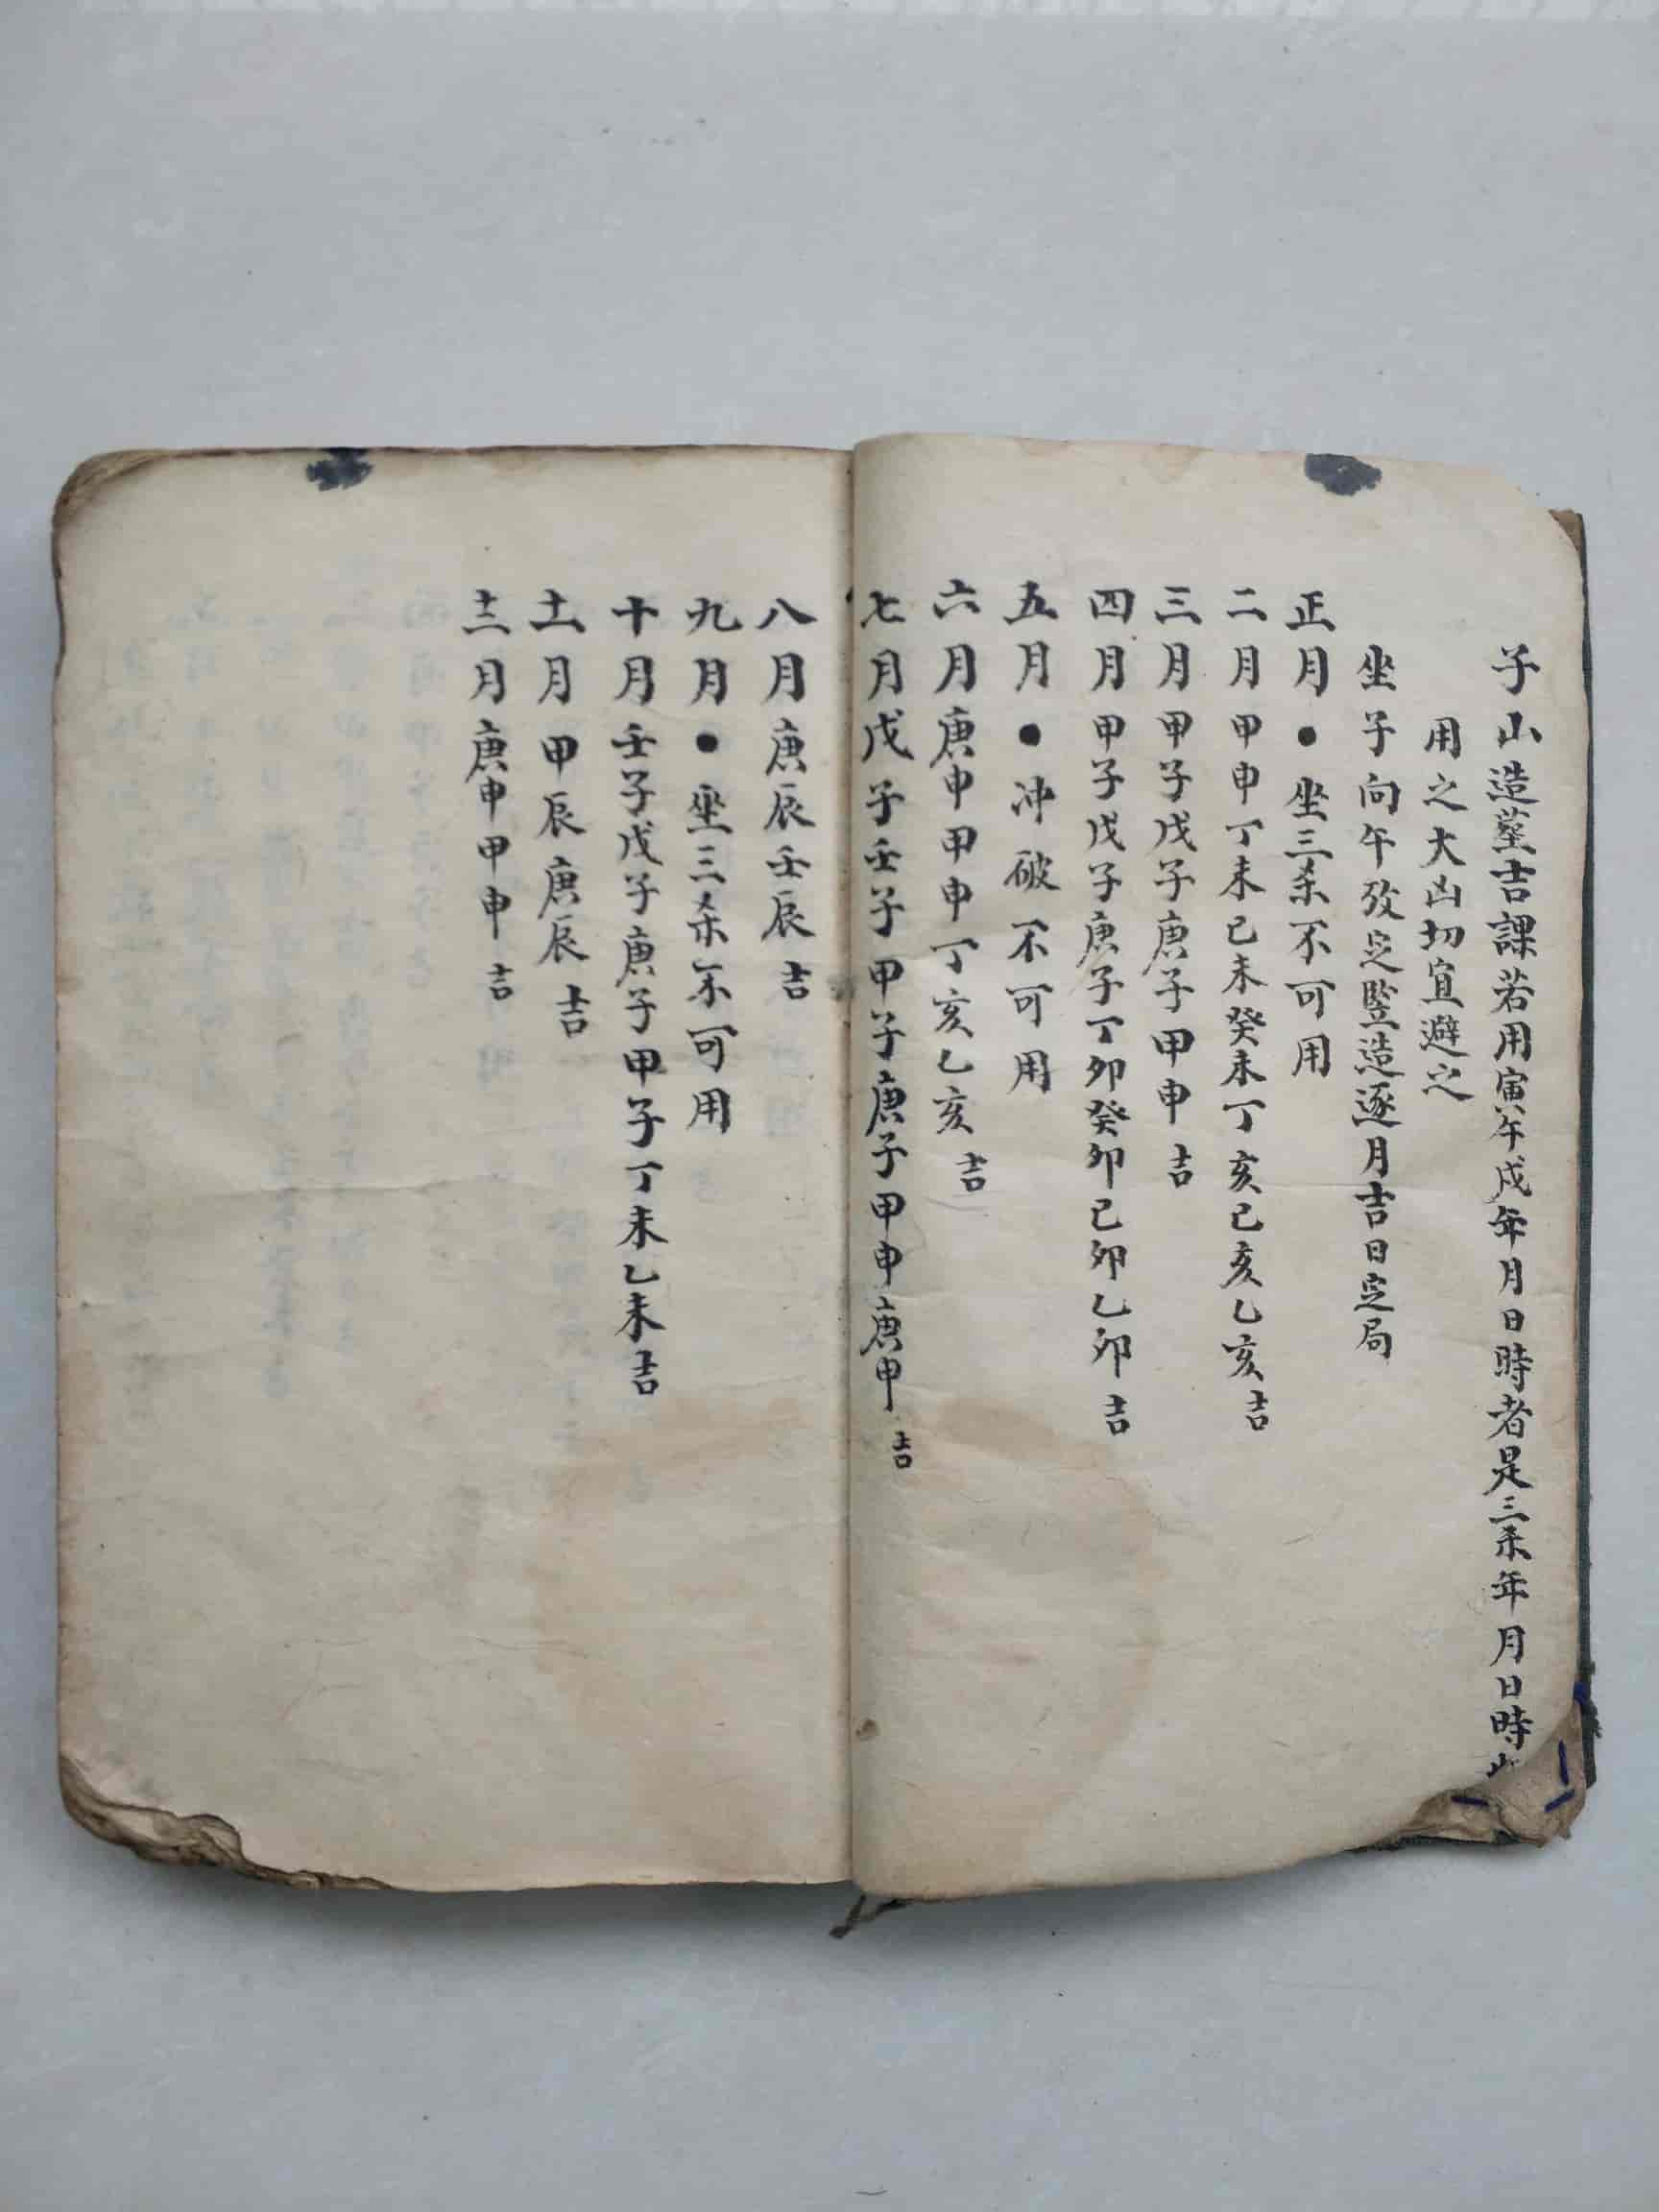 子山造葬吉課若用寅午戌年月日時者是三杀年月日時
用之大凶切宜避之
坐子向午攷定豎造逐月吉日定局
正月●坐三杀不可用
二月甲申丁未己未癸未丁亥己亥乙亥吉
三月甲子戊子庚子甲申吉
四月甲子戊子庚子丁卯癸卯己卯乙卯吉
五月●冲破不可用
六月庚申甲申丁亥乙亥吉
七月戊子壬子甲子庚子甲申庚申吉
八月庚辰壬辰吉
九月●坐三杀不可用
十月壬子戊子庚子甲子丁未乙未吉
十一月甲辰庚辰吉
十二月庚申甲申吉